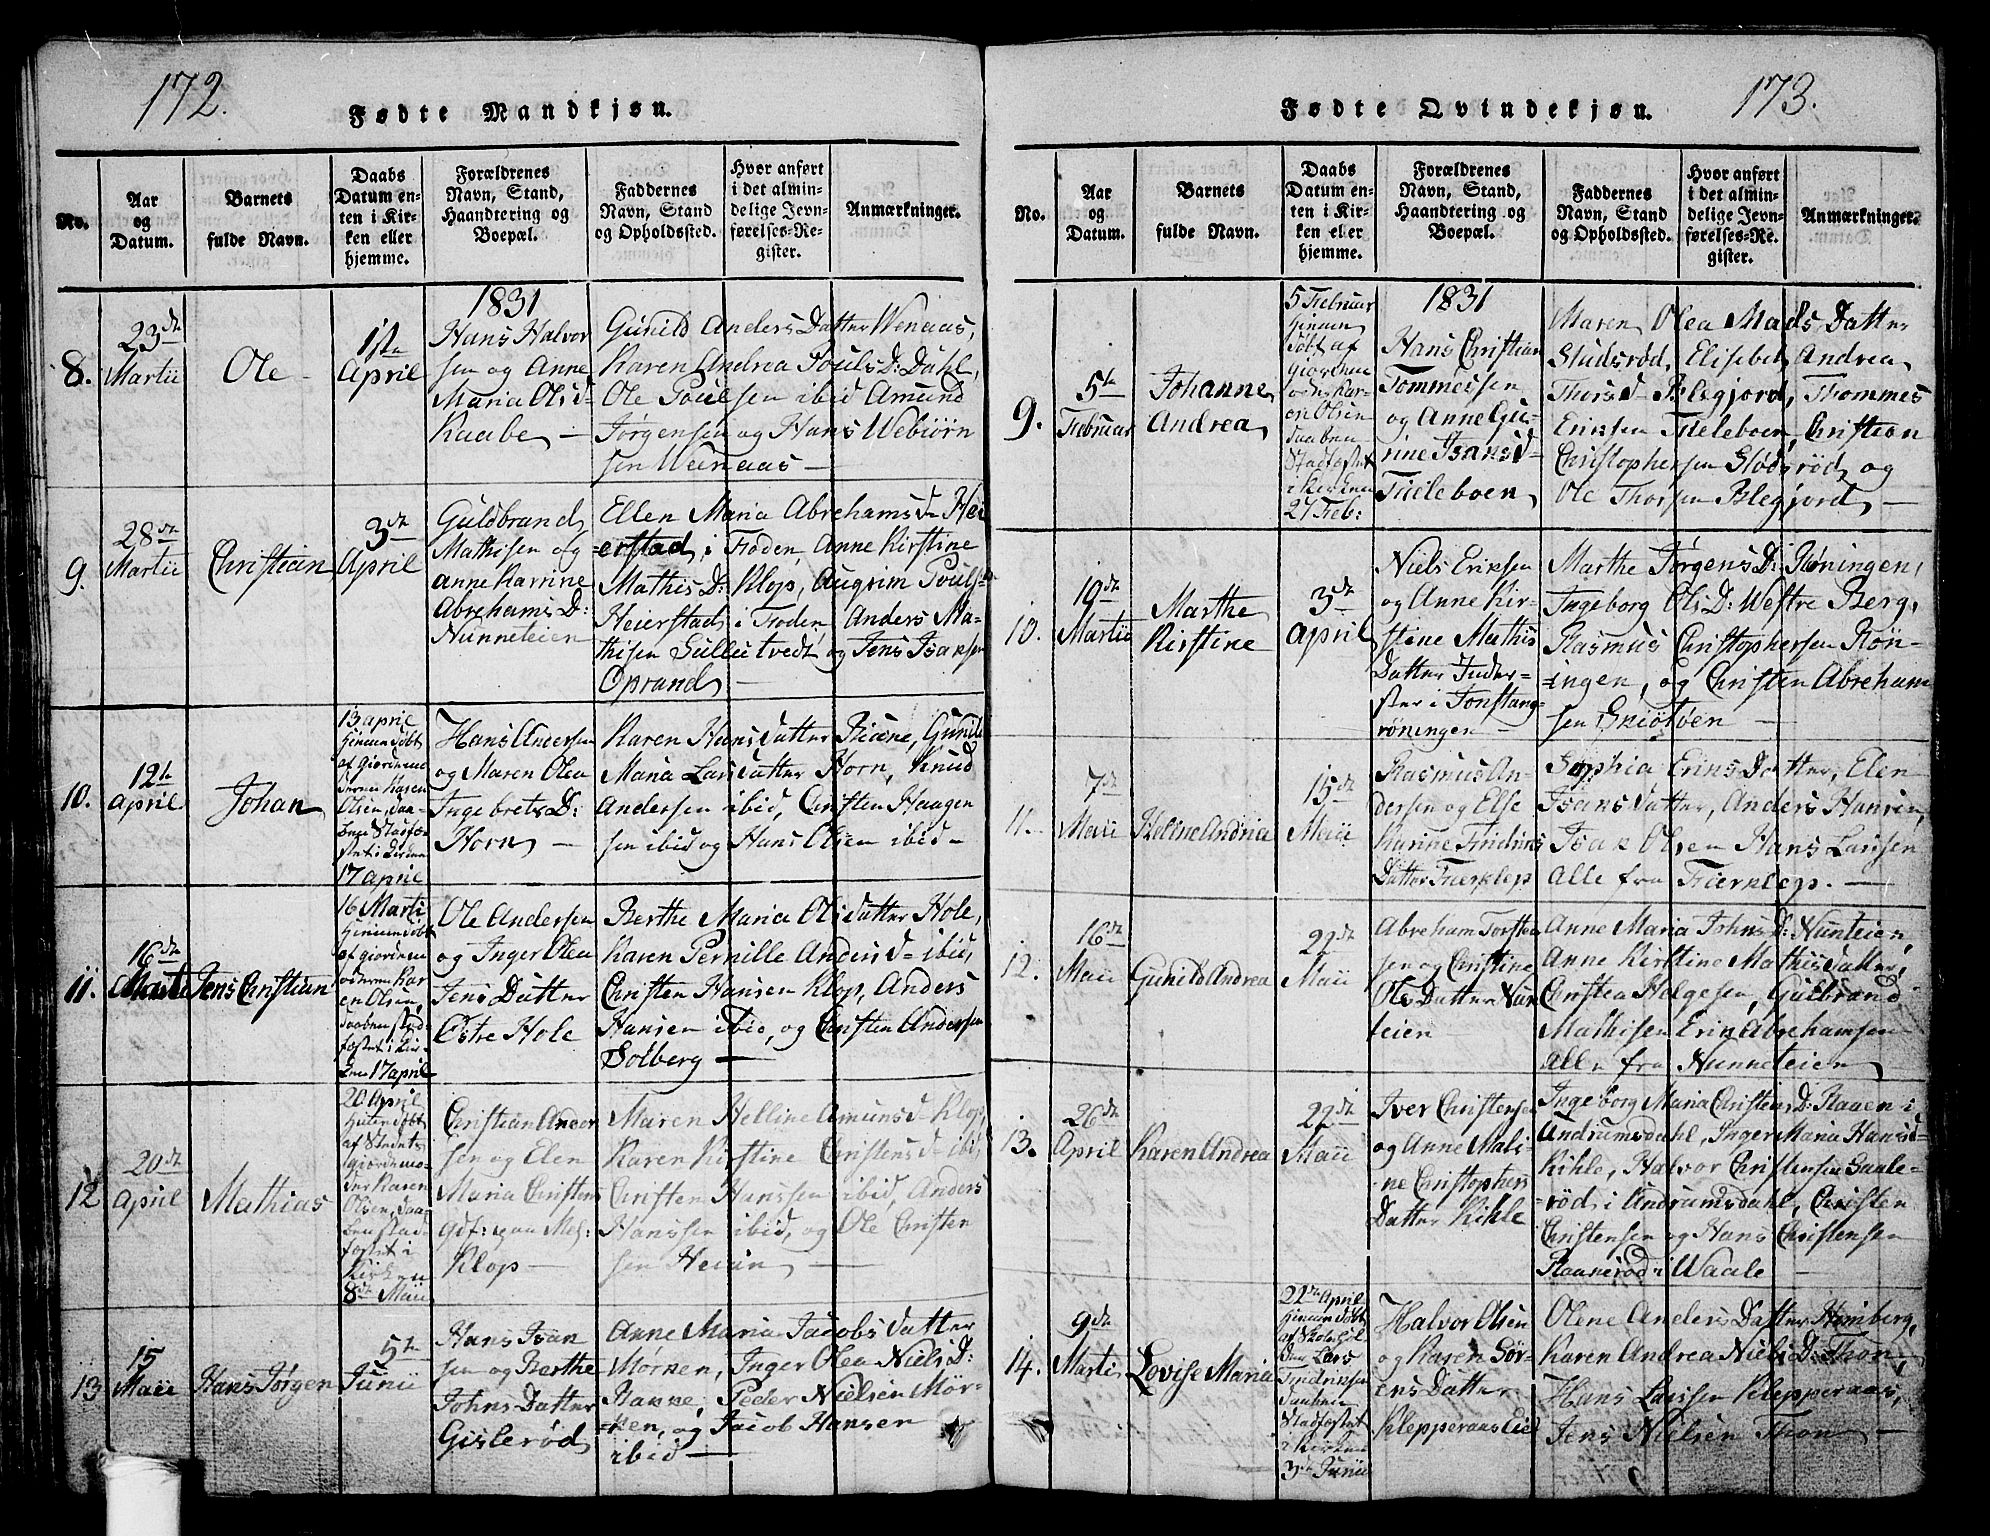 172.
Fødte Mandkjøn.
No.
Aar
og
Datum.
Barnets
fulde Navn.
Daabs
Datum en-
ten i Kir-
ken eller
hjemme.
Forældrenes
Navn, Stand,
Haandtering og
Boepæl.
Faddernes
Navn, Stand
og Opholdssted.
Hvor anført
i det almin-
delige Jevn-
førelses-Re-
gister.
Anmærkninger.
8.
23de
Martii
Ole
1ste
April
1831
Hans Halvor
sen og Anne
Maria Olsd
Kaabe
Gunild Anders Datter Wenaas,
Karen Andrea Pouls D: Dahl,
Ole Poulsen ibid Amund
Jørgensen og Hans Webiørn
sen Wenaas
9.
28de
Martii
Christian
3de
April
Guldbrand
Mathisen og
anne Karrine
Abrehams D:
Nunneteien
Ellen Maria Abrehamsd Hei
erstad i Froden, Anne Kirstine
Mathis D: Klop, Augrim Pouls-
Heierstad i Froden, Anders Ma-
thisen Sullutvedt, og Jens Isaksen
Oprand
10.
12te
April
Johan
13 april
af Giordemo
deren Karen
Olsen, Daa-
ben Stadfæ
stet i Kirken
17 april
Hans Andersen
og Maren Olea
Ingebrets D:
Horn
Karen Hans Datter Biune, Gunild
Maria Lars Datter Horn, Knud
Andersen ibid, Christen Haagen
sen ibid og Hans Olsen ibid
11.
16de
Marti
Jens Christian
16 Marti
af Giordemo
deren Kar
en Olsen,
Daaben stad
fæstet i Kir-
ken 17 april
Ole Andersen
og Inger Olea
Jens Datter
Østre Hole
Berthe Maria Ols Datter Hole,
Karen Pernille Andersd ibid,
Christen Hansen Klop, Anders
Hansen ibid, og Christen Andersen
Solberg
12
20de
April
Mathias
20 April
Giordemo-
der Karen
Olsen, Daa-
ben stad
fæstet i
Kirken
8de Maii
Christian Ander
sen og Elen
Maria Christens
Klop
Maren Helline Amunsd Klop,
Karen Kirstine Christensd ibi,
Christen Hanssen ibid, Anders
Hanssen ibid, og Ole Christen
sen
13
15
Maii
Hans Jørgen
5te
Junii
Hans Isan
sen og Berthe
Johns Datter
Gislerød
Anne Maria Jacobs Datter
Mørken, Inger Olea Niels D:
Nanne, Peder Nielsen Mør-
ken, og Jacob Hansen
ibid
173.
Fødte Qvindekjøn.
No.
Aar
og
Datum.
Barnets
fulde Navn.
Daabs
Datum en-
ten i Kir-
ken eller
hjemme.
Forældrenes
Navn, Stand,
Haandtering og
Boepæl.
Faddernes
Navn, Stand
og Opholdssted.
Hvor anført
i det almin-
delige Jevn-
førelses-Re-
gister.
Anmærkninger.
9.
5te
Februar
Johanne
Andrea
5 Februar
Giordemo
Ka-
ren Olsen
Daaben
Stadfæstet
i Kirken
27 Feb:
1831
Hans Christian
Tommessen
og Anne Gu-
rine Isansd
Fieleboen
Maren Olea Mads Datter
Studsrød, Elisebet Andrea
Thorsd Blegjord, Thommes
Eriksen Fieleboen, Christian
Christophersen Slodsrød, og
Ole Thorsen Blegjord
10.
19de
Martii
Marthe
Kirstine
3de
April
Niels Eriksen
og Anne Kir-
stine Mathis
Datter Inder-
ster i Tonstang-
røningen
Marthe Jørgens D: Røningen,
Ingeborg Ols D: Westre Berg,
Rasmus Christophersen Røn-
ingen, og Christen Abreham
sen
11.
7de
Maii
Helline Andria
15de
Maii
Rasmus An-
dersen og Else
Karine Fredriks
Datter Fierklop
Sophia Erins Datter, Elen
Isans Datter, Anders Hansen,
Isak Olsen Hans Larssen
Alle fra Fierklop.
12.
16de
Maii
Gunild Andrea
22de
Maii
Abreham Torsten
sen og Christine
Ols Datter Nun
teien
Anne Maria Johns D: Nunteien,
Anne Kirstine Mathis Datter,
Christen Helgesen, Gulbrand
Mathisen Erik Abrehamsen
Alle fra Nunneteien
13.
26de
April
Karen Andrea
22de
Maii
Iver Christensen
og Anne Mali-
ne Christophers
Datter Kihle
Ingeborg Maria Christens D: Raaen i
Andrumsdahl, Inger Maria Hansd
Kihle, Halvor Christensen Saale-
rød i Andrumsdahl, Christen
Christensen og Hans Christensen
i Waale
14.
9de
Marti
Lovise Maria
22de April
Lars
Fredriksen
Daaben
Stadfæstet
i Kirken
3de Junii
Halvor Olsen
og Karen Sør-
ens Datter
Klepperaas Eie
Olene Anders Datter Homberg,
Karen Andrea Niels D: Thon,
Hans Larssen Klepperaas,
Jens Nielsen Thon